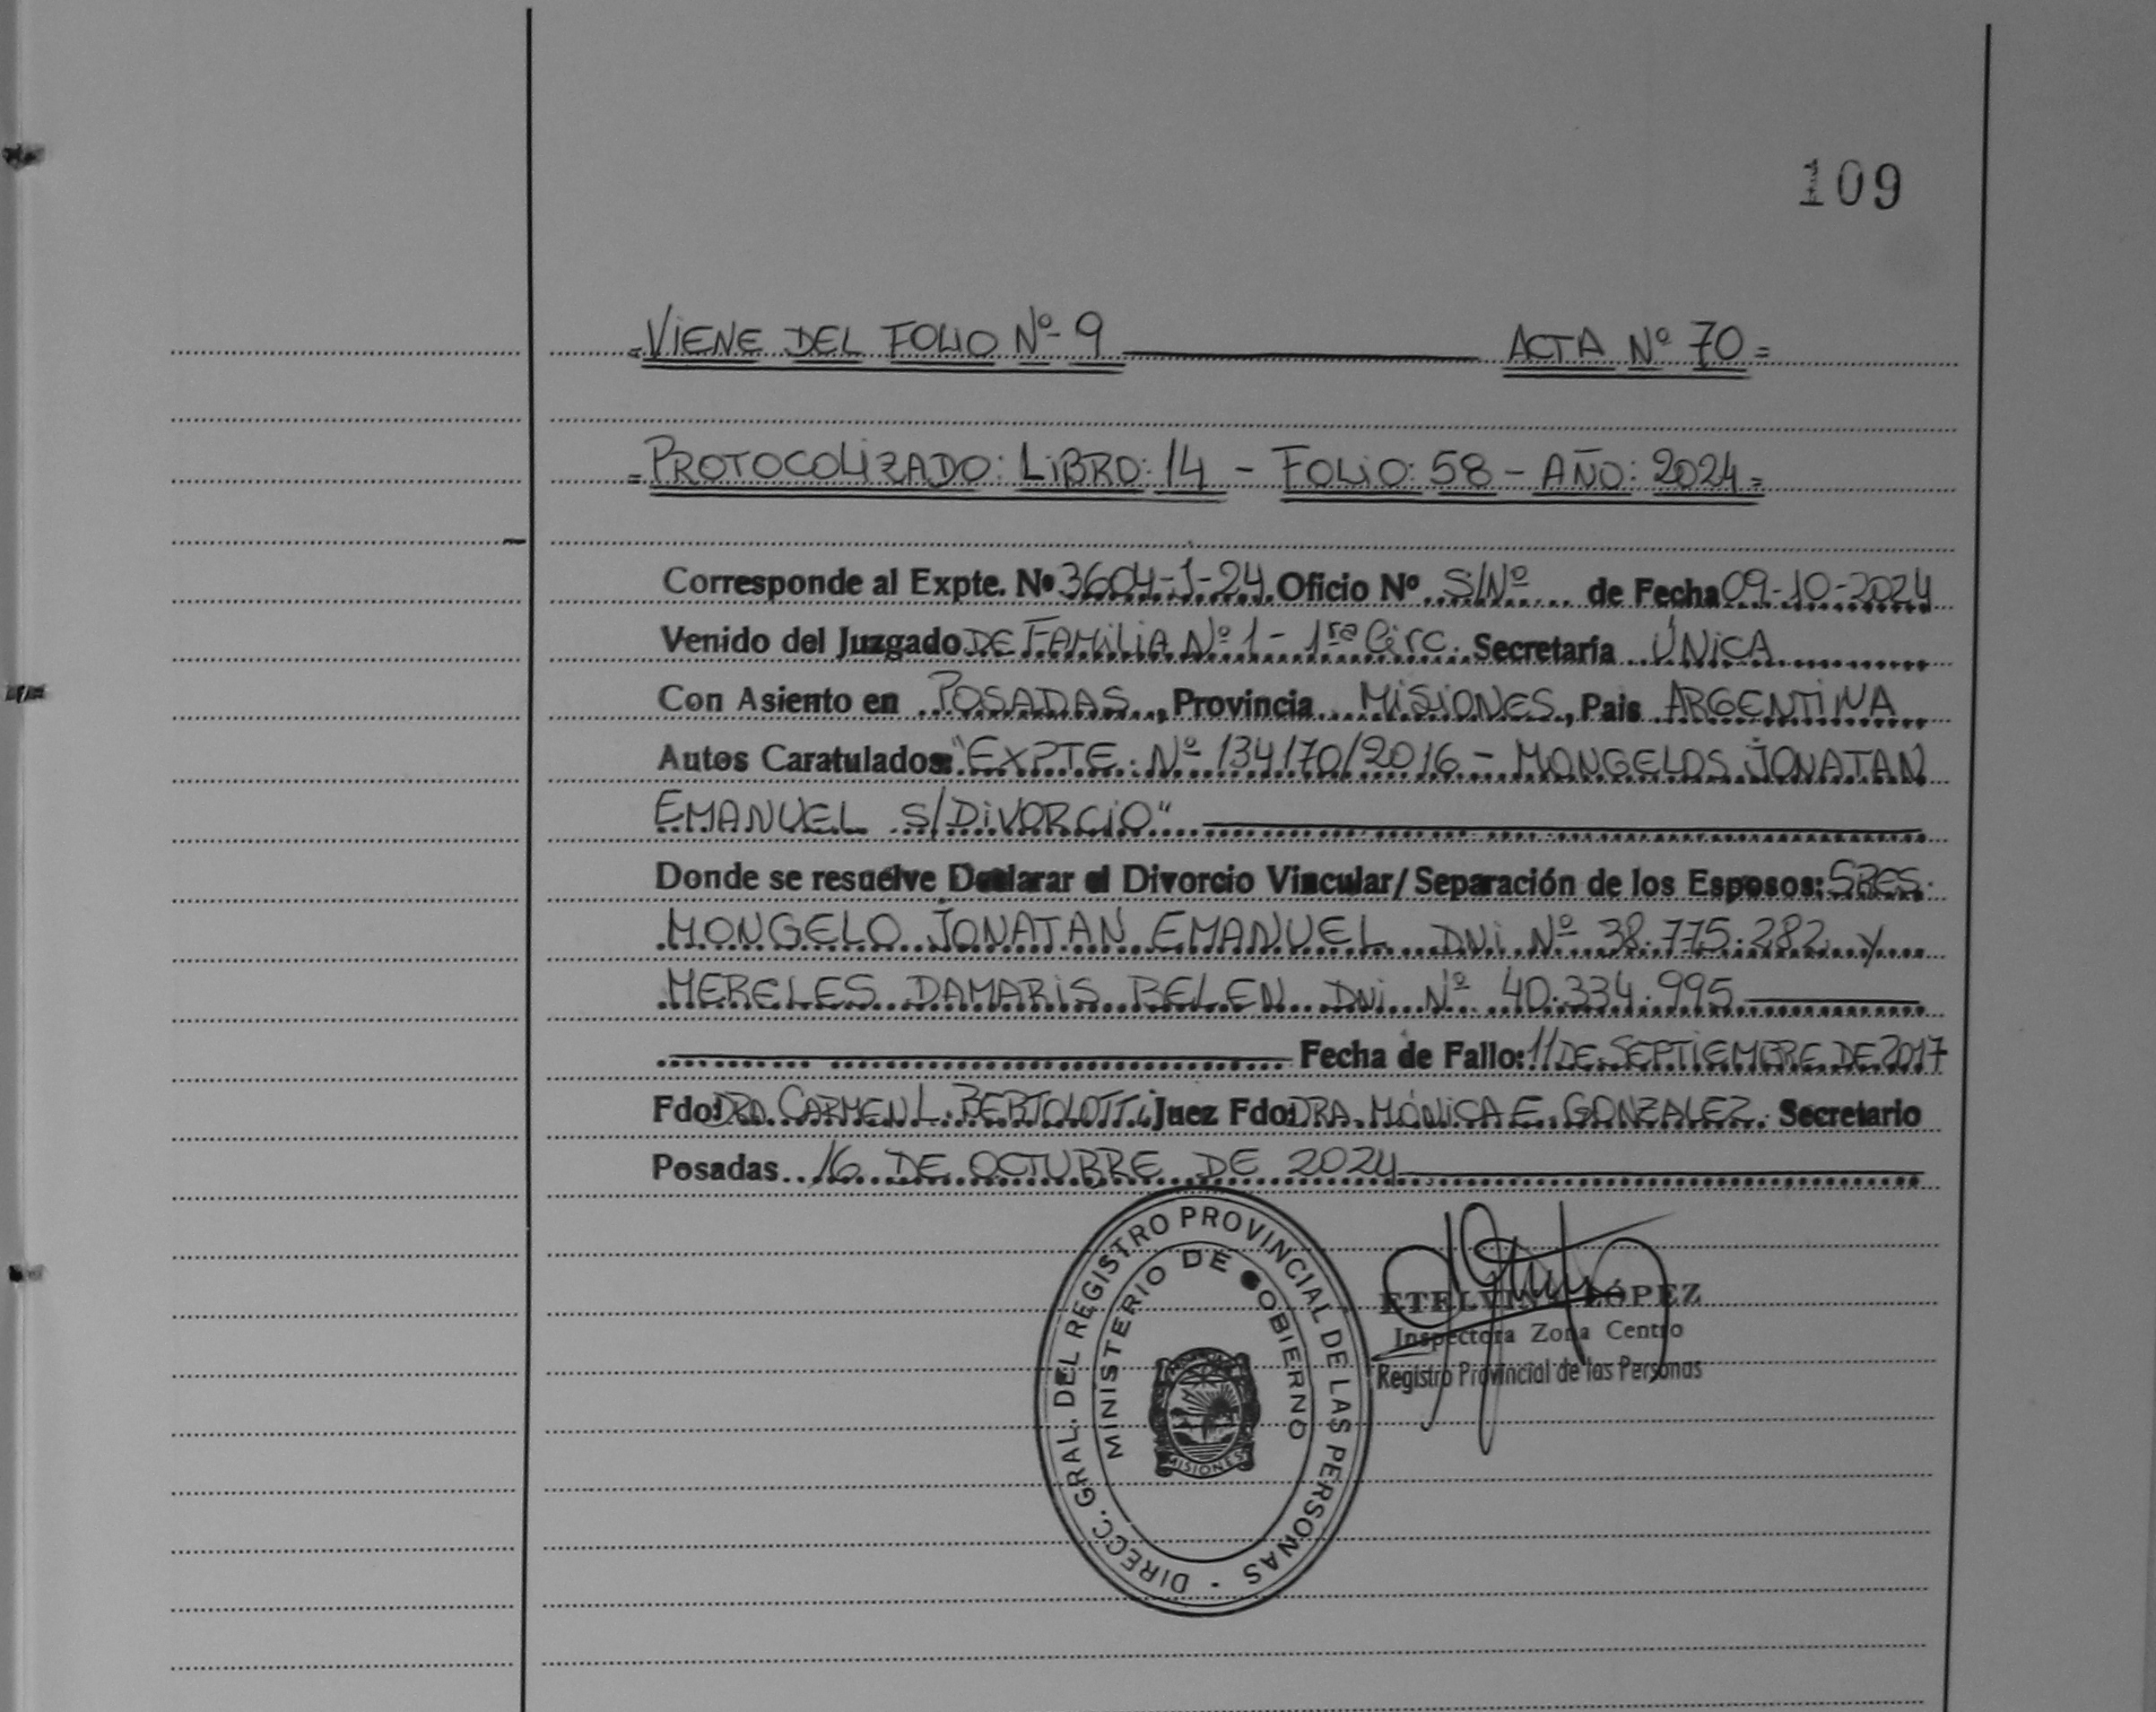 109
=VIENE DEL FOLIO Nº 9 ACTA Nº 70=
=PROTOCOLIZADO: LIBRO: 14 - FOLIO: 58 - AÑO: 2024=
Corresponde al Expte. Nº 3604-1-24. Oficio Nº S/Nº de Fecha 09-10-2024
Venido del Juzgado DE FAMILIA Nº 1 - 1ra Circ. Secretaría ÚNICA
Con Asiento en POSADAS, Provincia MISIONES, Pais ARGENTINA
Autos Caratulados: "EXPTE. Nº 134170/2016 - MONGELOS JONATAN
EMANUEL S/DIVORCIO"
Donde se resuelve Declarar el Divorcio Vincular/Separación de los Esposos: SRES.
MONGELO JONATAN EMANUEL DNI Nº 38.775.282 y
MERELES DAMARIS BELEN DNI Nº 40.334.995
Fecha de Fallo: 11 DE SEPTIEMBRE DE 2017
Fdo: DRA. CARMEN L. BERTOLOTTI Juez Fdo: DRA. MÓNICA E. GONZALEZ. Secretario
Posadas 16 DE OCTUBRE DE 2024
DIRECC. GRAL. DEL REGISTRO PROVINCIAL DE LAS PERSONAS -
MINISTERIO DE GOBIERNO
MISIONES
ETELVINA LÓPEZ
Inspectora Zona Centro
Registro Provincial de las Personas